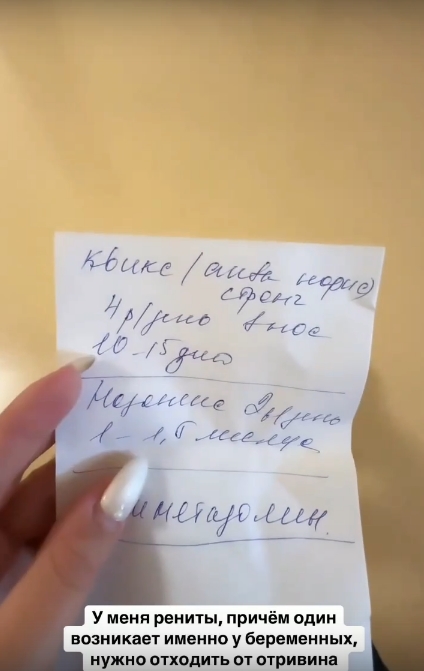 Квикс / аква норис)
стронг
4 р/день в нос
10 - 15 дней
Назонекс 2 р/день
1 - 1,5 месяца
метазолин.
У меня рениты, причём один
возникает именно у беременных,
нужно отходить от отривина